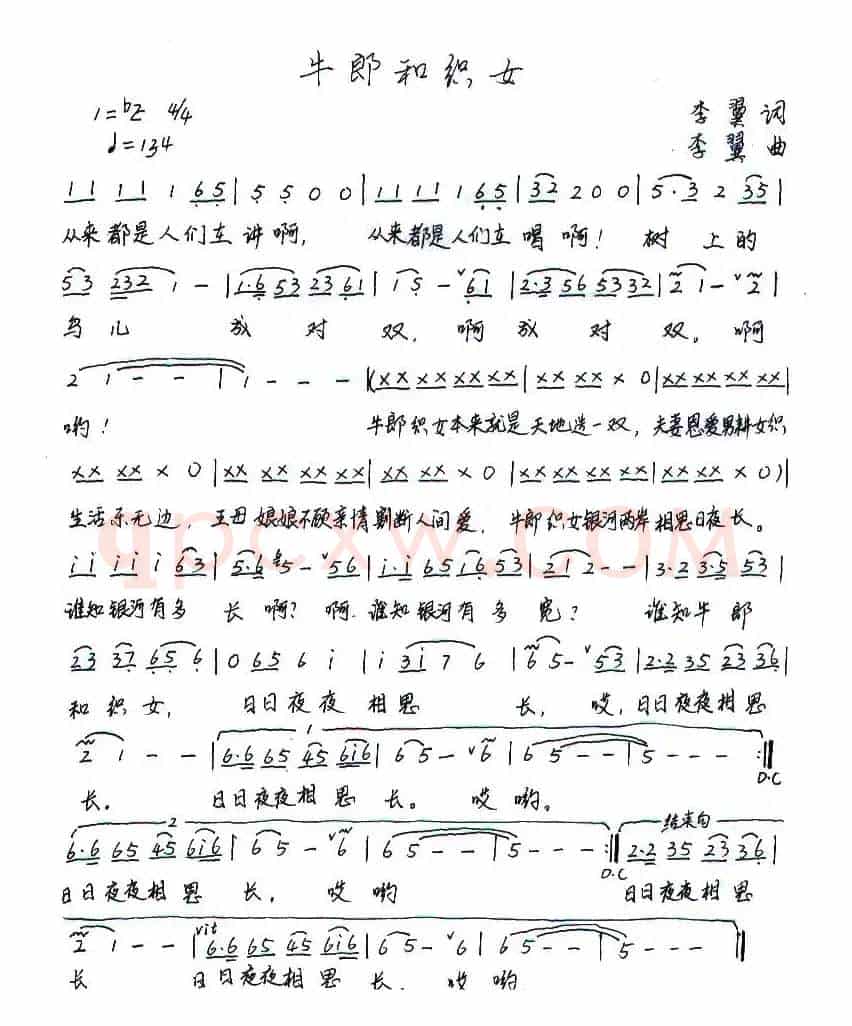 牛郎和织女
1=♭E 4/4
♩=134
李翼词
李翼曲
1 1 1 1 1 6 5 | 5 5 0 0 | 1 1 1 1 1 6 5 | 3 2 2 0 0 | 5 · 3 2 3 5 |
从来都是人们在讲啊, 从来都是人们在唱啊! 树上的
5 3 2 3 2 1 - | 1 · 6 5 3 2 3 6 1 | 1 5 - ∨ 6 1 | 2 · 3 5 6 5 3 3 2 | 2 1 - ∨ 2 |
鸟儿 成对双, 啊成对双。 啊
2 1 - - | 1 - - - | (x x x x x x x x | x x x x x 0 | x x x x x x x x |
哟! 牛郎织女本来就是天地造一双, 夫妻恩爱男耕女织
x x x x x 0 | x x x x x x x x | x x x x x 0 | x x x x x x x x | x x x x x 0) |
生活乐无边, 王母娘娘不顾亲情割断人间爱, 牛郎织女银河两岸相思日夜长。
i i i i i 6 3 | 5 · 6 5 - ∨ 5 6 | i · i 6 5 i 6 5 3 | 2 1 2 - - | 3 · 2 3 · 5 5 3 |
谁知银河有多长啊? 啊.谁知银河有多宽? 谁知牛郎
2 3 3 7 6 5 6 | 0 6 5 6 i | i 3 i 7 6 | 6 5 - ∨ 5 3 | 2 · 2 3 5 2 3 3 6 |
和织女, 日日夜夜相思 长, 哎,日日夜夜相思
2 1 - - | 1 6 · 6 6 5 4 5 6 i 6 | 6 5 - ∨ 6 | 6 5 - - | 5 - - - :‖
D.C
长。 日日夜夜相思长。 哎哟。
2
6 · 6 6 5 4 5 6 i 6 | 6 5 - ∨ 6 | 6 5 - - | 5 - - - :‖ 结束句 2 · 2 3 5 2 3 3 6 |
D.C
日日夜夜相思长, 哎哟 日日夜夜相思
2 1 - - | vit 6 · 6 6 5 4 5 6 i 6 | 6 5 - ∨ 6 | 6 5 - - | 5 - - - ‖
长 日日夜夜相思长. 哎哟
qpcxw.com